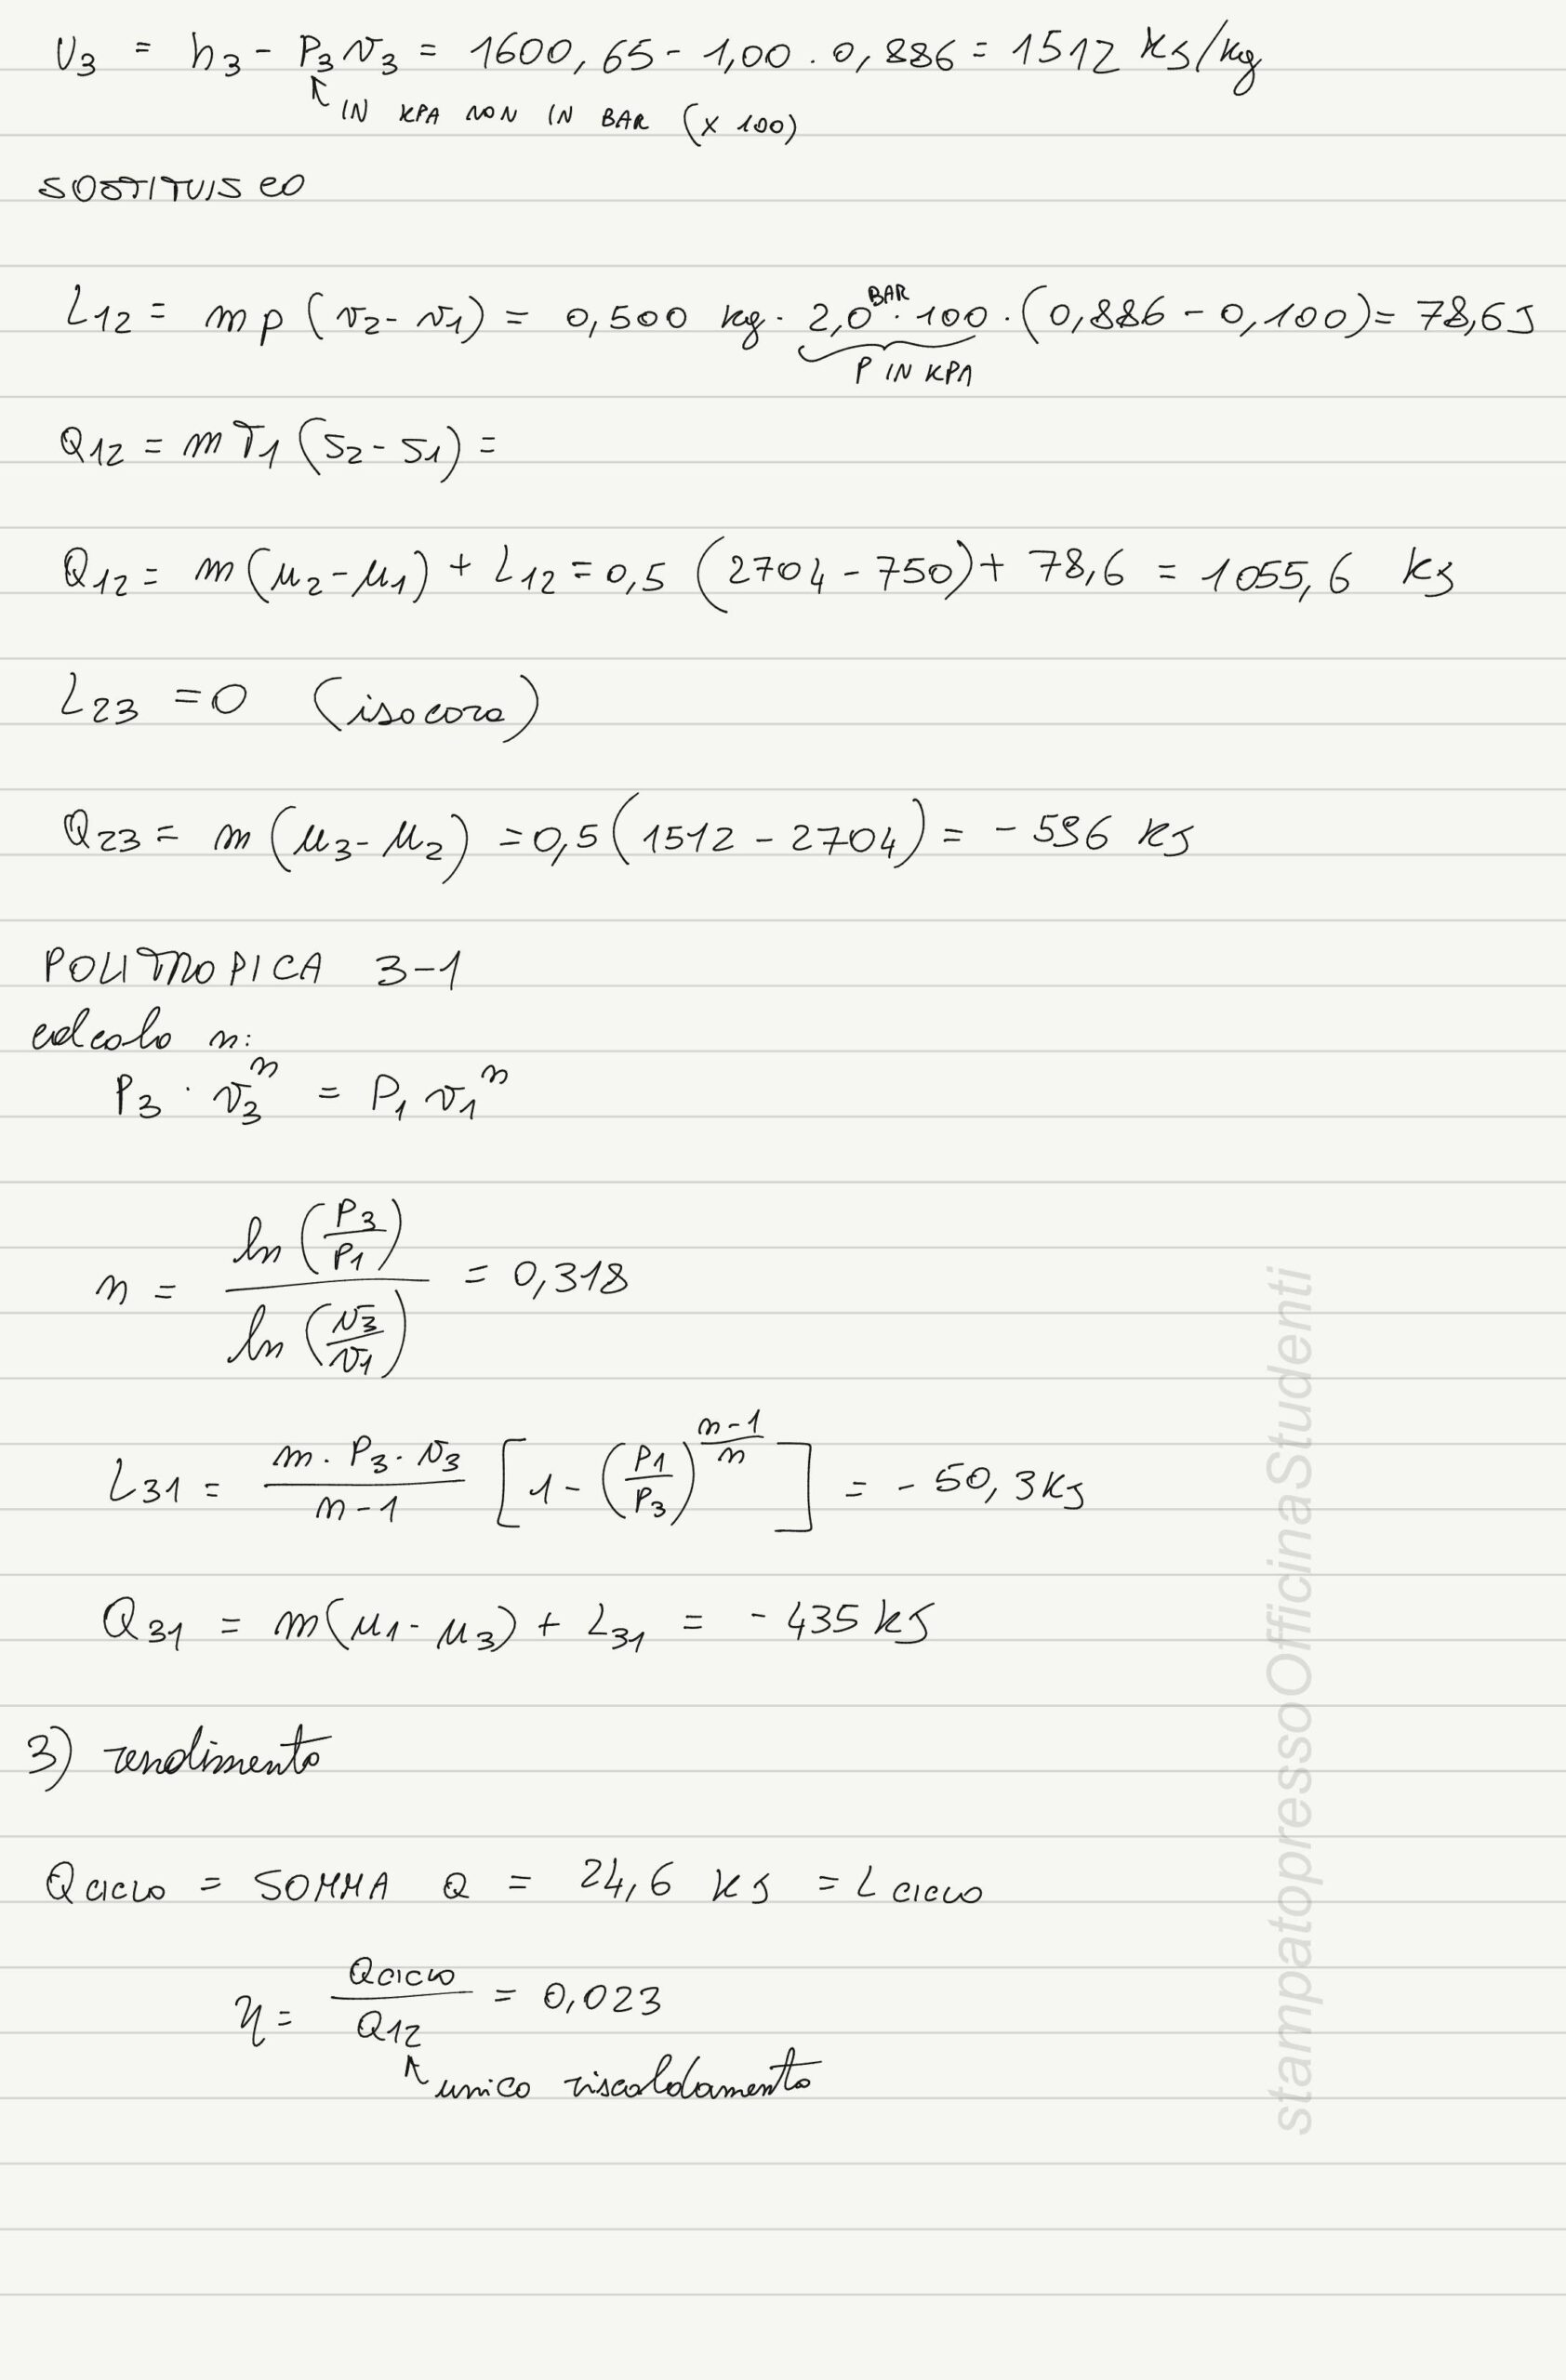 U3 = h3 - P3 v3 = 1600,65 - 1,00 . 0,886 = 1512 KJ/kg
↖ IN KPA NON IN BAR (x 100)
SOSTITUISCO
L12 = m p (v2 - v1) = 0,500 kg · 2,0 BAR · 100 · (0,886 - 0,100) = 78,6 J
P IN KPA
Q12 = m T1 (S2 - S1) =
Q12 = m (u2 - u1) + L12 = 0,5 (2704 - 750) + 78,6 = 1055,6 KJ
L23 = 0 (isocora)
Q23 = m (u3 - u2) = 0,5 (1512 - 2704) = - 596 KJ
POLITROPICA 3-1
calcolo n:
P3 · v3^n = P1 v1^n
n = ln (P3/P1) / ln (v3/v1) = 0,318
L31 = m · P3 · v3 / n-1 [1 - (P1/P3)^(n-1/n)] = - 50,3 KJ
Q31 = m (u1 - u3) + L31 = - 435 KJ
3) rendimento
Qciclo = SOMMA Q = 24,6 KJ = Lciclo
η = Qciclo / Q12 = 0,023
↖ unico riscaldamento
stampatopressoOfficinaStudenti